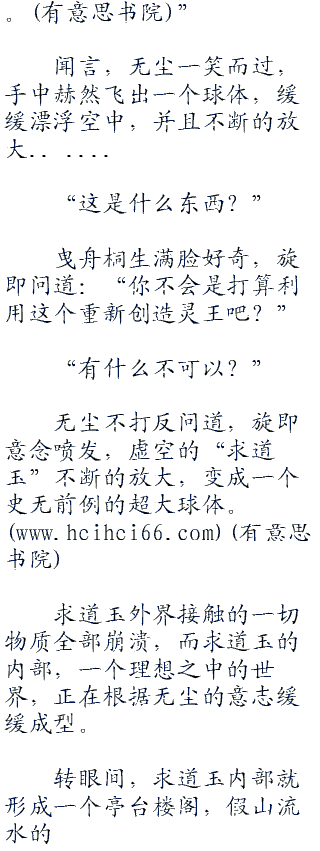 。(有意思书院)”
闻言，无尘一笑而过，
手中赫然飞出一个球体，缓
缓漂浮空中，并且不断的放
大.. ....
“这是什么东西？”
曳舟桐生满脸好奇，旋
即问道：“你不会是打算利
用这个重新创造灵王吧？”
“有什么不可以？”
无尘不打反问道，旋即
意念喷发，虚空的“求道
玉”不断的放大，变成一个
史无前例的超大球体。
(www.hcihci66.com)(有意思
书院)
求道玉外界接触的一切
物质全部崩溃，而求道玉的
内部，一个理想之中的世
界，正在根据无尘的意志缓
缓成型。
转眼间，求道玉内部就
形成一个亭台楼阁，假山流
水的